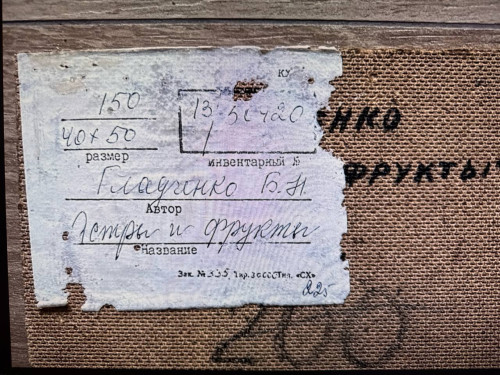 КУ
150
40×50
размер
13 51420
инвентарный №
ЕНКО
Гладченко Б.Н
Автор
ФРУКТЫ
Астры и фрукты
Название
Зак. № 335 Тир. 30000 Тип. «СХ»
225
200